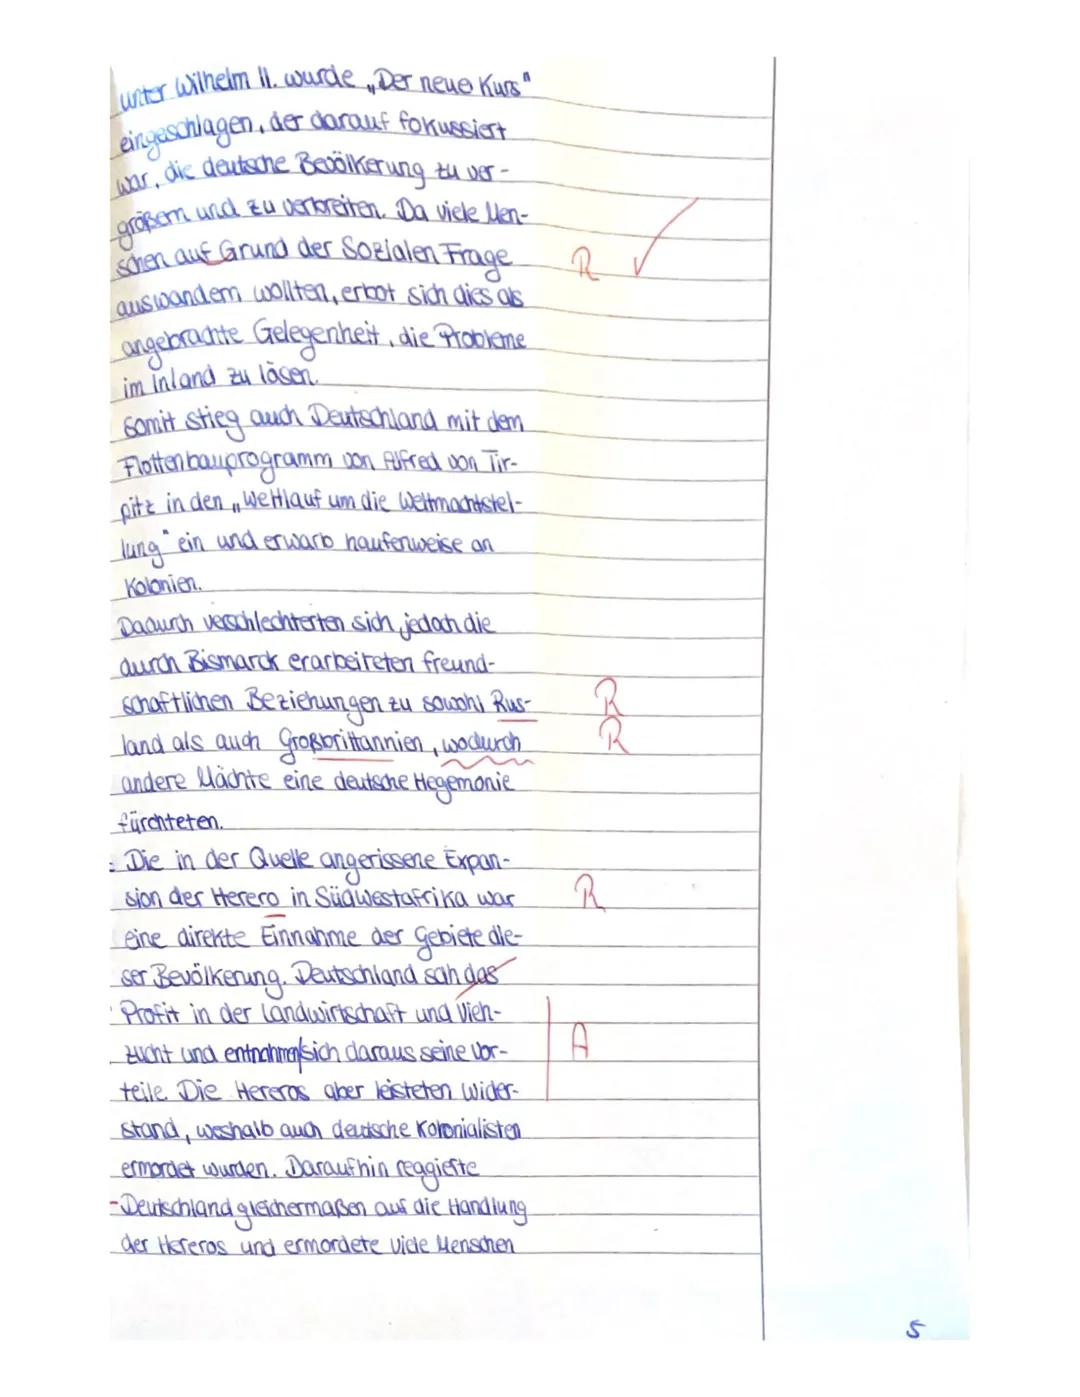 unter Wilhelm II. wurde „Der neue Kurs"
eingeschlagen, der darauf fokussiert
war, die deutsche Bevölkerung zu ver-
größern und zu verbreiten. Da viele Men-
schen auf Grund der Sozialen Frage R
auswandern wollten, erbot sich dies als
angebrachte Gelegenheit, die Probleme
im Inland zu lösen.
Somit stieg auch Deutschland mit dem
Flottenbauprogramm von Alfred von Tir-
pitz in den „Wettlauf um die Weltmachtstel-
lung" ein und erwarb haufenweise an
Kolonien.
Dadurch verschlechterten sich jedoch die
durch Bismarck erarbeiteten freund-
schaftlichen Beziehungen zu sowohl Rus- R
land als auch Großbrittannien, wodurch R
andere Mächte eine deutsche Hegemonie
fürchteten.
Die in der Quelle angerissene Expan-
sion der Herero in Südwestafrika war R
eine direkte Einnahme der Gebiete die-
ser Bevölkerung. Deutschland sah das
Profit in der Landwirtschaft und Vieh-
zucht und entnahmen sich daraus seine Vor- A
teile. Die Hereros aber leisteten Wider-
stand, weshalb auch deutsche Kolonialisten
ermordet wurden. Daraufhin reagierte
Deutschland gleichermaßen auf die Handlung
der Hereros und ermordete viele Menschen
5